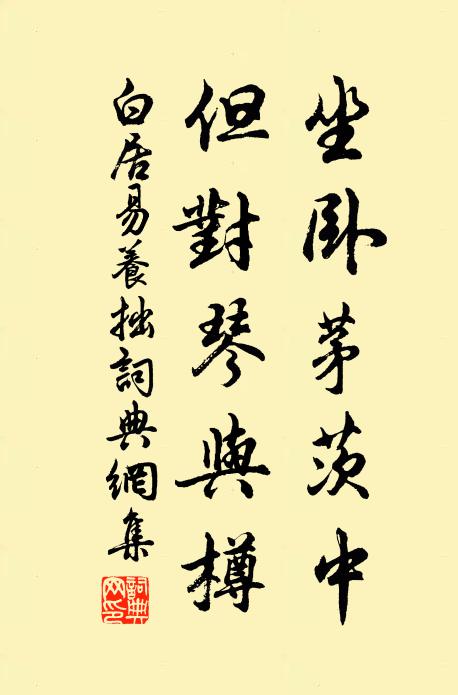 坐卧茅茨中
但對琴與樽
白居易養拙詞典網集
詞典網印